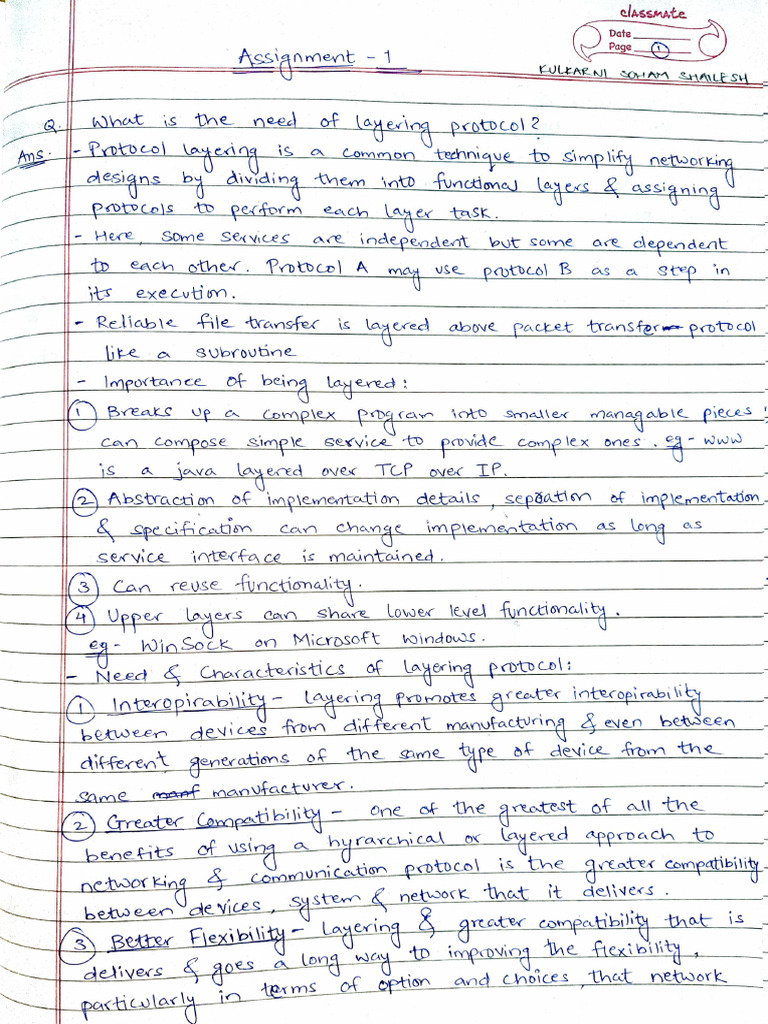 classmate
Date
Page 1
Assignment - 1
KULKARNI SOHAM SHAILESH
Q. What is the need of layering protocol?
Ans. - Protocol layering is a common technique to simplify networking
designs by dividing them into functional layers & assigning
protocols to perform each layer task.
- Here, some services are independent but some are dependent
to each other. Protocol A may use protocol B as a step in
its execution.
- Reliable file transfer is layered above packet transfer protocol
like a subroutine
- Importance of being layered:
① Breaks up a complex program into smaller managable pieces
can compose simple service to provide complex ones. eg - www
is a java layered over TCP over IP.
② Abstraction of implementation details, sepration of implementation
& specification can change implementation as long as
service interface is maintained.
③ Can reuse functionality.
④ Upper layers can share lower level functionality.
eg - WinSock on Microsoft windows.
- Need & Characteristics of layering protocol:
① Interopirability - layering promotes greater interopirability
between devices from different manufacturing & even between
different generations of the same type of device from the
same manufacturer.
② Greater Compatibility - One of the greatest of all the
benefits of using a hyrarchical or layered approach to
networking & communication protocol is the greater compatibility
between devices, system & network that it delivers.
③ Better Flexibility - Layering & greater compatibility that is
delivers & goes a long way to improving the flexibility,
particularly in terms of option and choices, that network